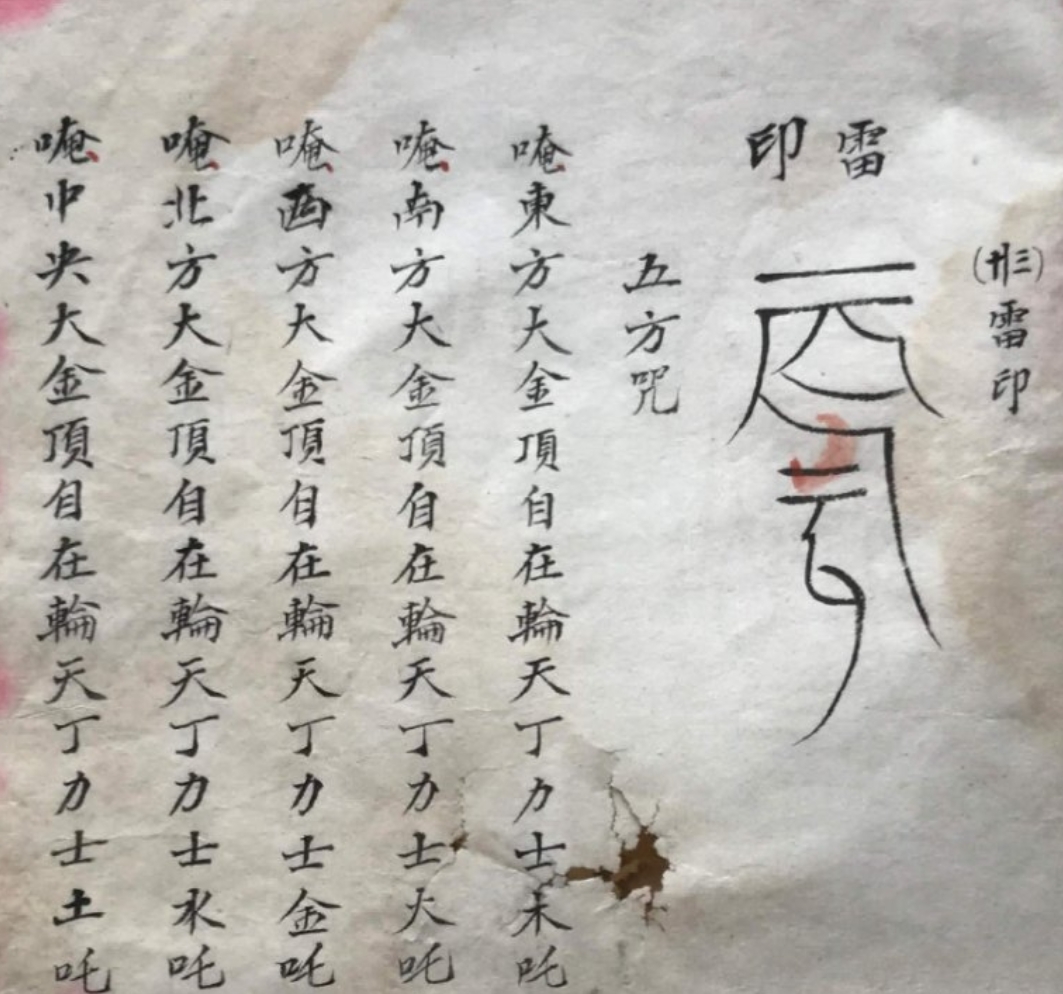 (卅三)雷印
雷印
五方咒
唵東方大金頂自在輪天丁力士木吒
唵南方大金頂自在輪天丁力士火吒
唵西方大金頂自在輪天丁力士金吒
唵北方大金頂自在輪天丁力士水吒
唵中央大金頂自在輪天丁力士土吒